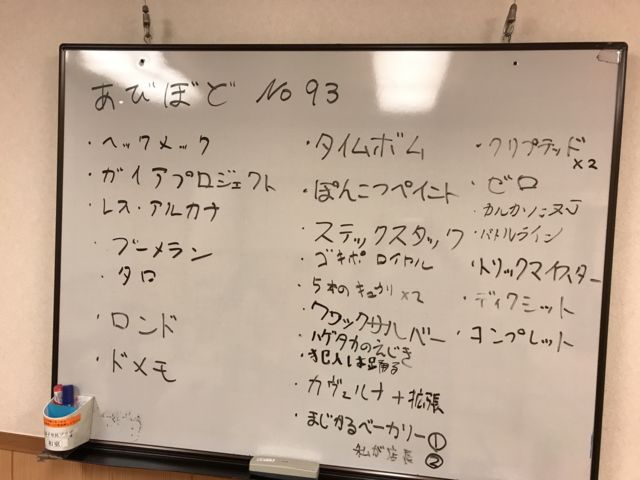 あびぼど No 93
・ヘックメック
・ガイアプロジェクト
・レス・アルカナ
・ブーメラン
・タロ
・ロンド
・ドメモ
・タイムボム
・ぽんこつペイント
・ステックスタック
・ゴキポ ロイヤル
・5本のキュウリ ×2
・クワックサルバー
・ハゲタカのえじき
・犯人は踊る
・カヴェルナ+拡張
・まじかるベーカリー①
私が店長 ②
・クリプテッド ×2
・ゼロ
・カルカソンヌJ
・バトルライン
・トリックマイスター
・ディクシット
・コンプレット